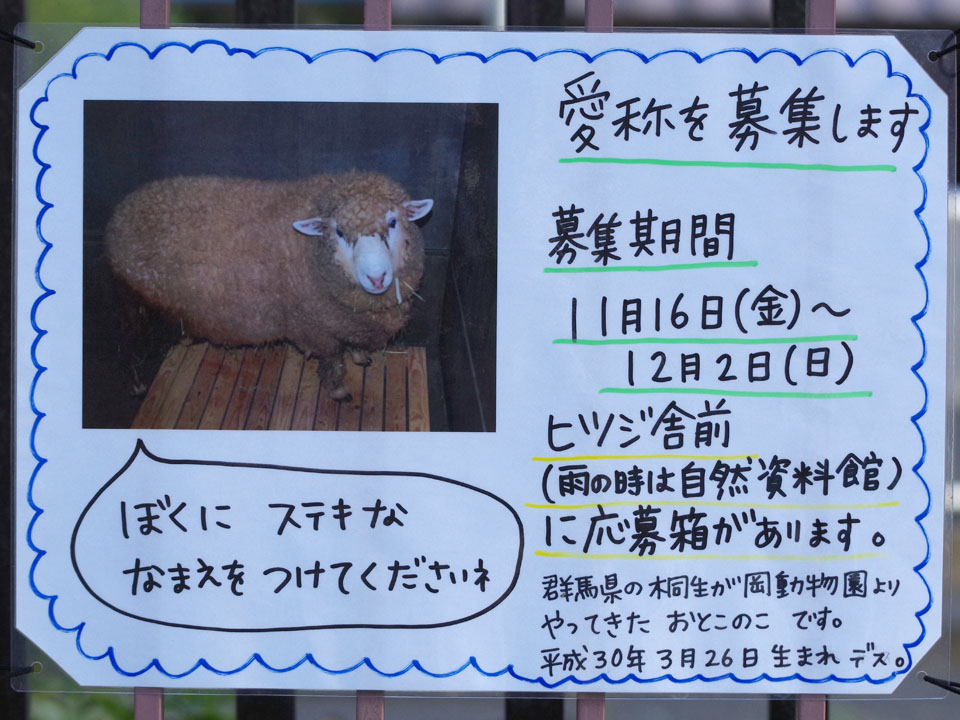 愛称を募集します
募集期間
11月16日(金)～
12月2日(日)
ヒツジ舎前
(雨の時は自然資料館)
に応募箱があります。
群馬県の桐生が岡動物園より
やってきた おとこのこ です。
平成30年3月26日生まれデス。
ぼくに ステキな
なまえを つけてくださいネ